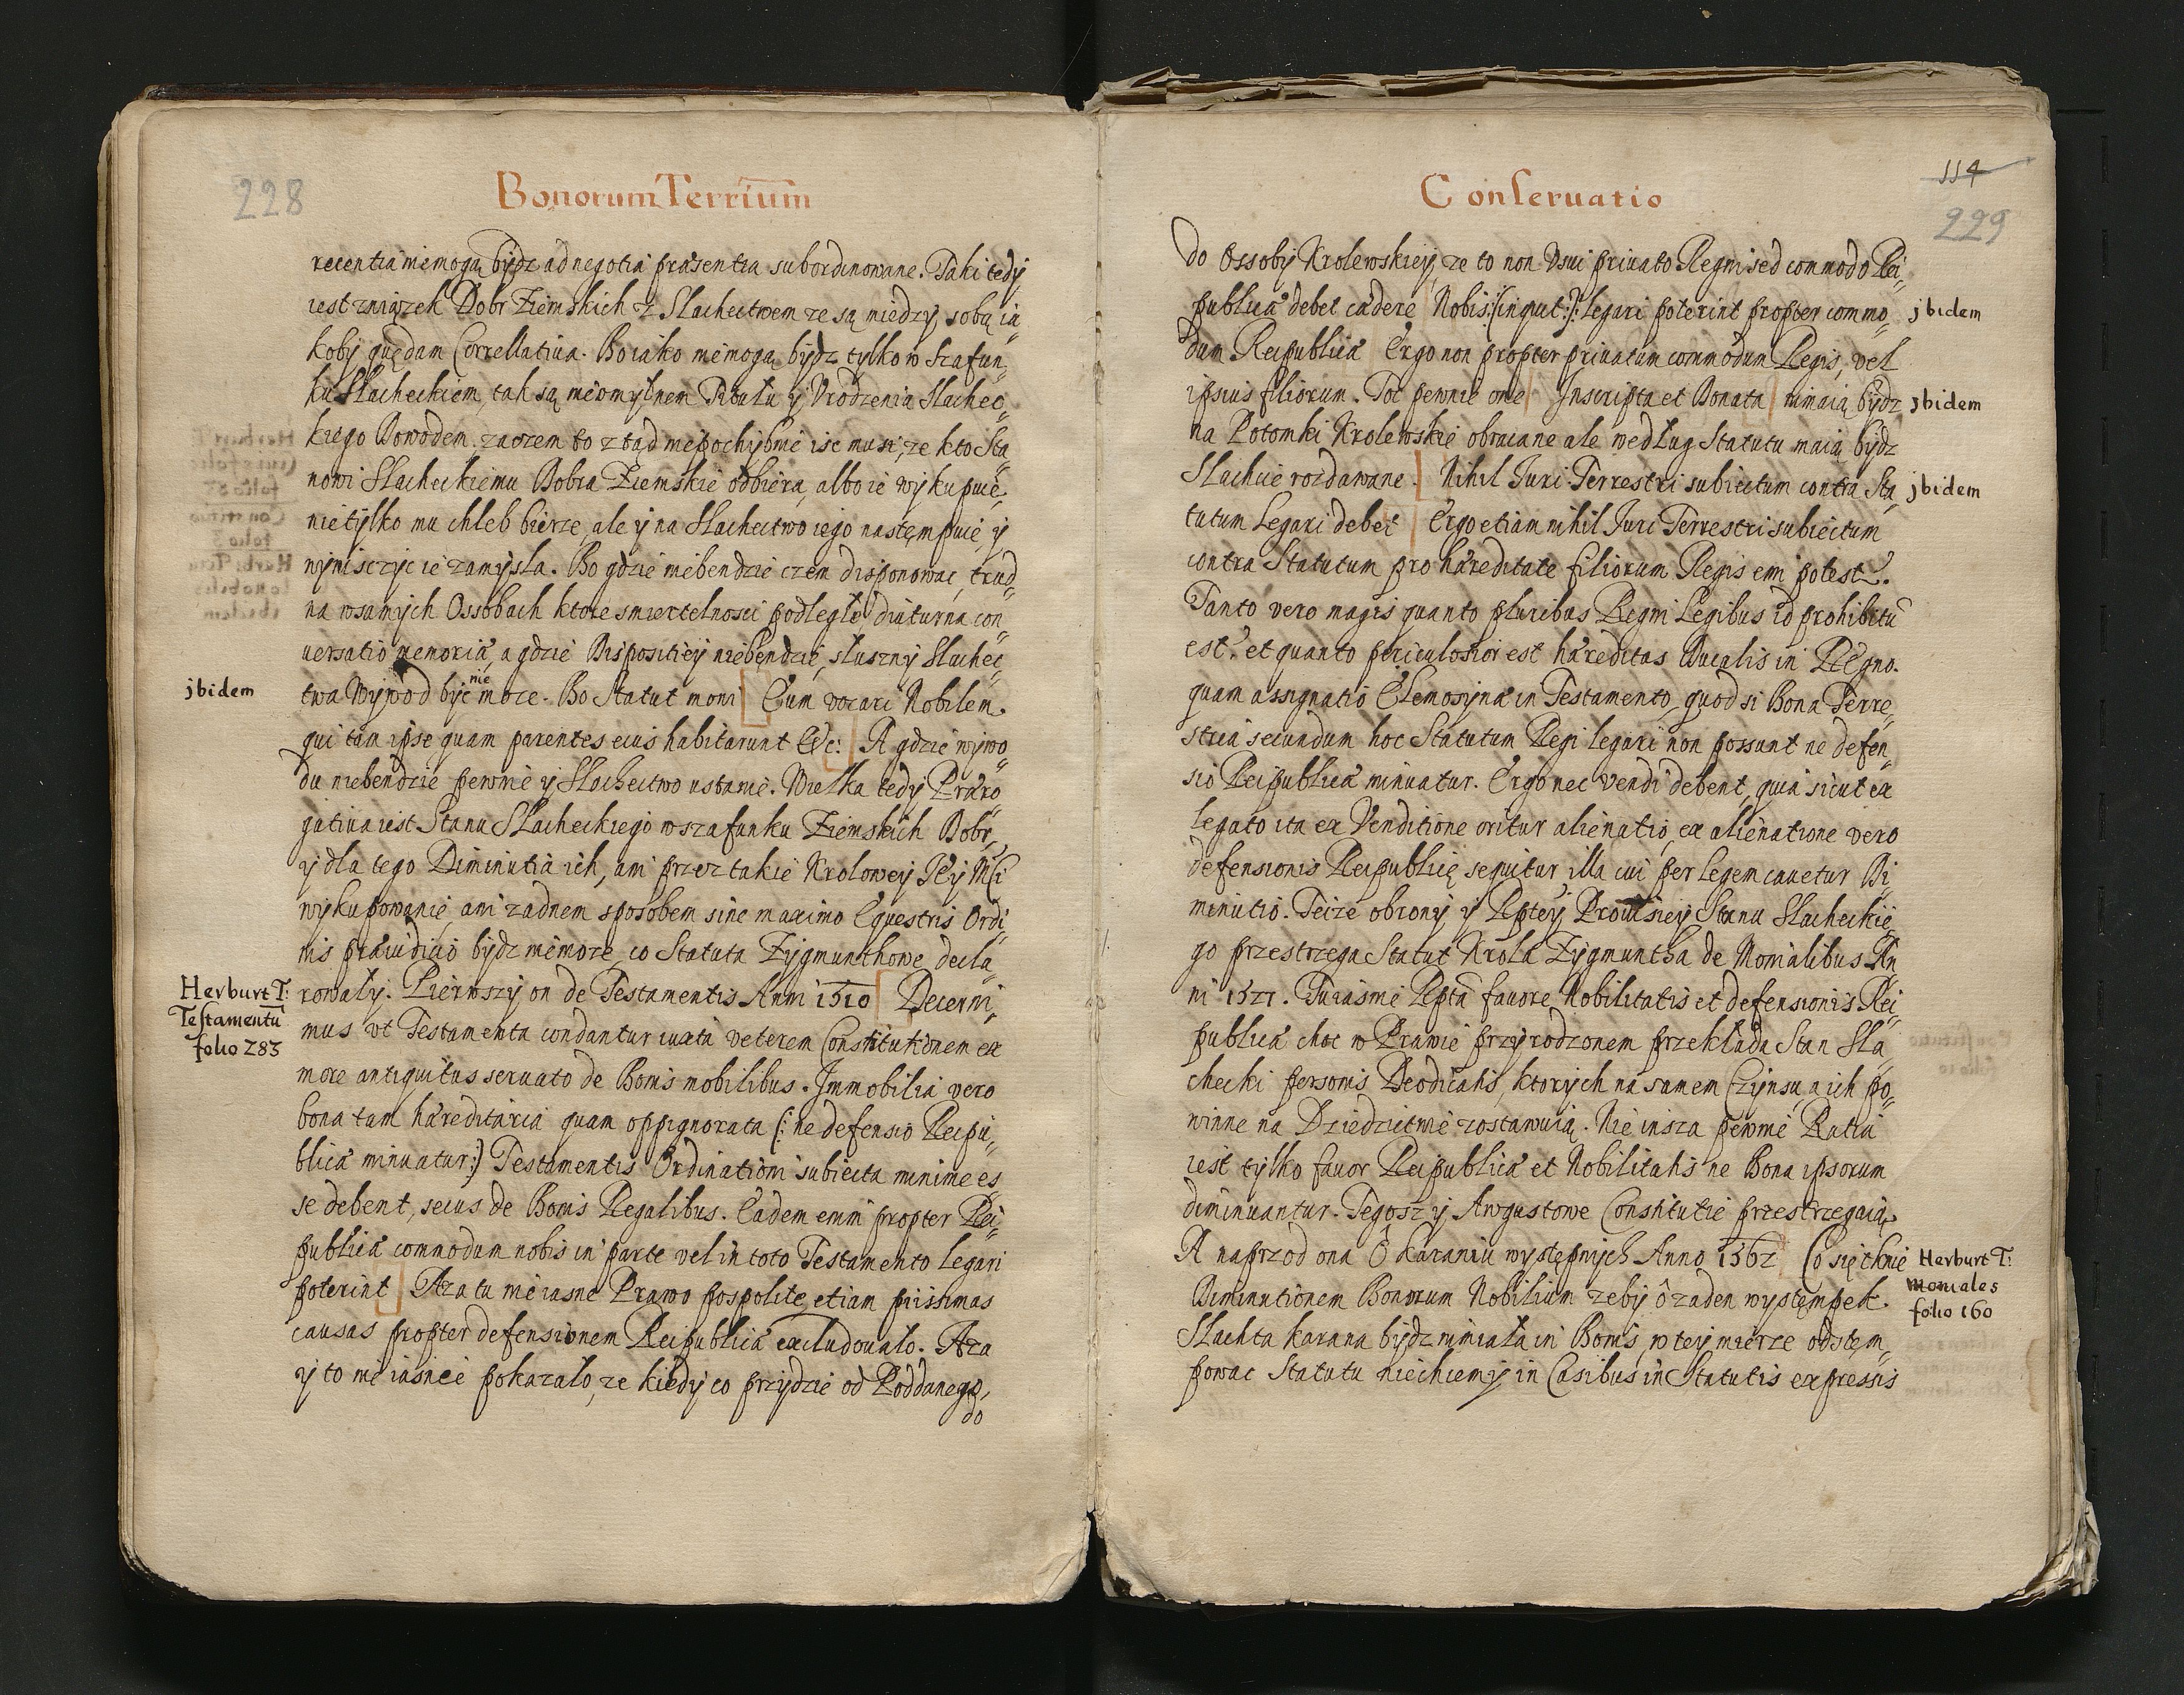 228
Bonorum Terrium
recentia niemogą bydz ad negotia præsentia subordinowane. Taki tedy
iest związek Dobr Ziemskich z Slachectwem ze są miedzy sobą ia„
koby quędam Correllatiua. Bo iako niemogą bydz tylko w szafun„
ku Slacheckiem, tak są nieomylnem Titulu y Vrodzenia Slachec„
kiego Dowodem. zaczem to z tąd niepochybnie isc musi, ze kto Sta„
nowi Slacheckiemu Dobra Ziemskie odbiera, albo ie wykupuie,
nie tylko mu chleb bierze, ale y na Slachectwo iego następuie, y
wyniszczyc ie zamysla. Bo gdzie niebendzie czem disponowac, trud„
na wsamych Ossobach ktore smiertelnosci podległe diuturna con„
uersatio memoriæ, a gdzie Dispositiey niebendzie, sluszny Slachec„
jbidem
twa Wywod byc nie moze. Bo Statut mowi Eum vocari Nobilem.
qui tam ipse quam parentes eius habitarunt &c: A gdzie wywo„
du niebendzie pewnie y Slachectwo ustanie. Wielka tedy Præro„
gatiua iest Stanu Slacheckiego w szafunku Ziemskich Dobr,
y dla tego Diminutia ich, ani przez takie Krolowey Jey Msci
wykupowanie, ani zadnem sposobem sine maximo Equestris Ordi„
nis præiudicio bydz niemoze, co Statuta Zygmunthowe decla„
Herburt T:
Testamentū
folio 283
rowaly. Pierwszy on de Testamentis Anni 1510 Decerni„
mus vt Testamenta condantur iuxta veterem Constitutionem ex
more antiquitus seruato de Bonis mobilibus. Immobilia vero
bona tam hæreditaria quam oppignorata (: ne defensio Reipu„
blicæ minuatur:) Testamentis Ordinationi subiecta minime es„
se debent, secus de Bonis Regalibus. Eadem enim propter Rei„
publicæ commodum nobis in parte vel in toto Testamento legari
poterint Aza tu nie iasne Prawo pospolite, etiam piissimas
causas propter defensionem Reipublicæ excludowalo. Aza
y to nie iasnie pokazalo, ze kiedy co przydzie od Poddanego,
do
114
229
Conseruatio
do Ossoby Krolewskiey, ze to non Vsui priuato Regni sed commodo Rei„
publicæ debet cadere Nobis: (inquit:) legari poterint propter commo„
jbidem
dum Reipublicæ Ergo non propter priuatum commodum Regis, vel
ipsius filiorum. Toc pewnie one Inscripta et Donata nimaią bydz
jbidem
na Potomki Krolewskie obracane ale według Statutu maią bydz
Slachcie rozdawane. Nihil Juri Terrestri subiectum contra Sta„
jbidem
tutum Legari debet Ergo etiam nihil Juri Terrestri subiectum
contra Statutum pro hæreditate filiorum Regis emi potest.
Tanto vero magis quanto pluribus Regni Legibus id prohibitū
est. et quanto periculosior est hæreditas Ducalis in Regno.
quam assignatio Elemosynæ in Testamento, quod si Bona Terre„
stria secundum hoc Statutum Regi legari non possunt ne defen„
sio Reipublicæ minuatur. Ergo nec vendi debent, quia sicut ex
legato ita ex Venditione oritur alienatio, ex alienatione vero
defensionis Reipublicę sequitur illa cui per legem cauetur Di„
minutio. Teize obrony y Rptey Prowisiey Stanu Slacheckie„
go przestrzega Statut Krola Zygmuntha de Monialibus An„
ni 1521. Tuiasmie Rpta fauore Nobilitatis et defensionis Rei„
publicæ choc w Prawie przyrodzonem przekłada Stan Sla„
checki personis Deodicatis, ktorych na samem Czynsu, a ich po„
winne na Dziedzictwie zostawuią. Nie insza pewnie Ratia
iest tylko fauor Reipublicæ et Nobilitatis ne Bona ipsorum
diminuantur. Tegosz y Awgustowe Constitutie przestrzegaią,
A naprzod ona O karaniu występnych Anno 1562 Co się tknie
Herburt T:
moniales
folio 160
Diminutionem Bonorum Nobilium zeby o zaden występek.
Slachta karana bydz nimiała in Bonis, w tey mierze odstęm„
powac Statutu niechcemy in Casibus in Statutis expressis